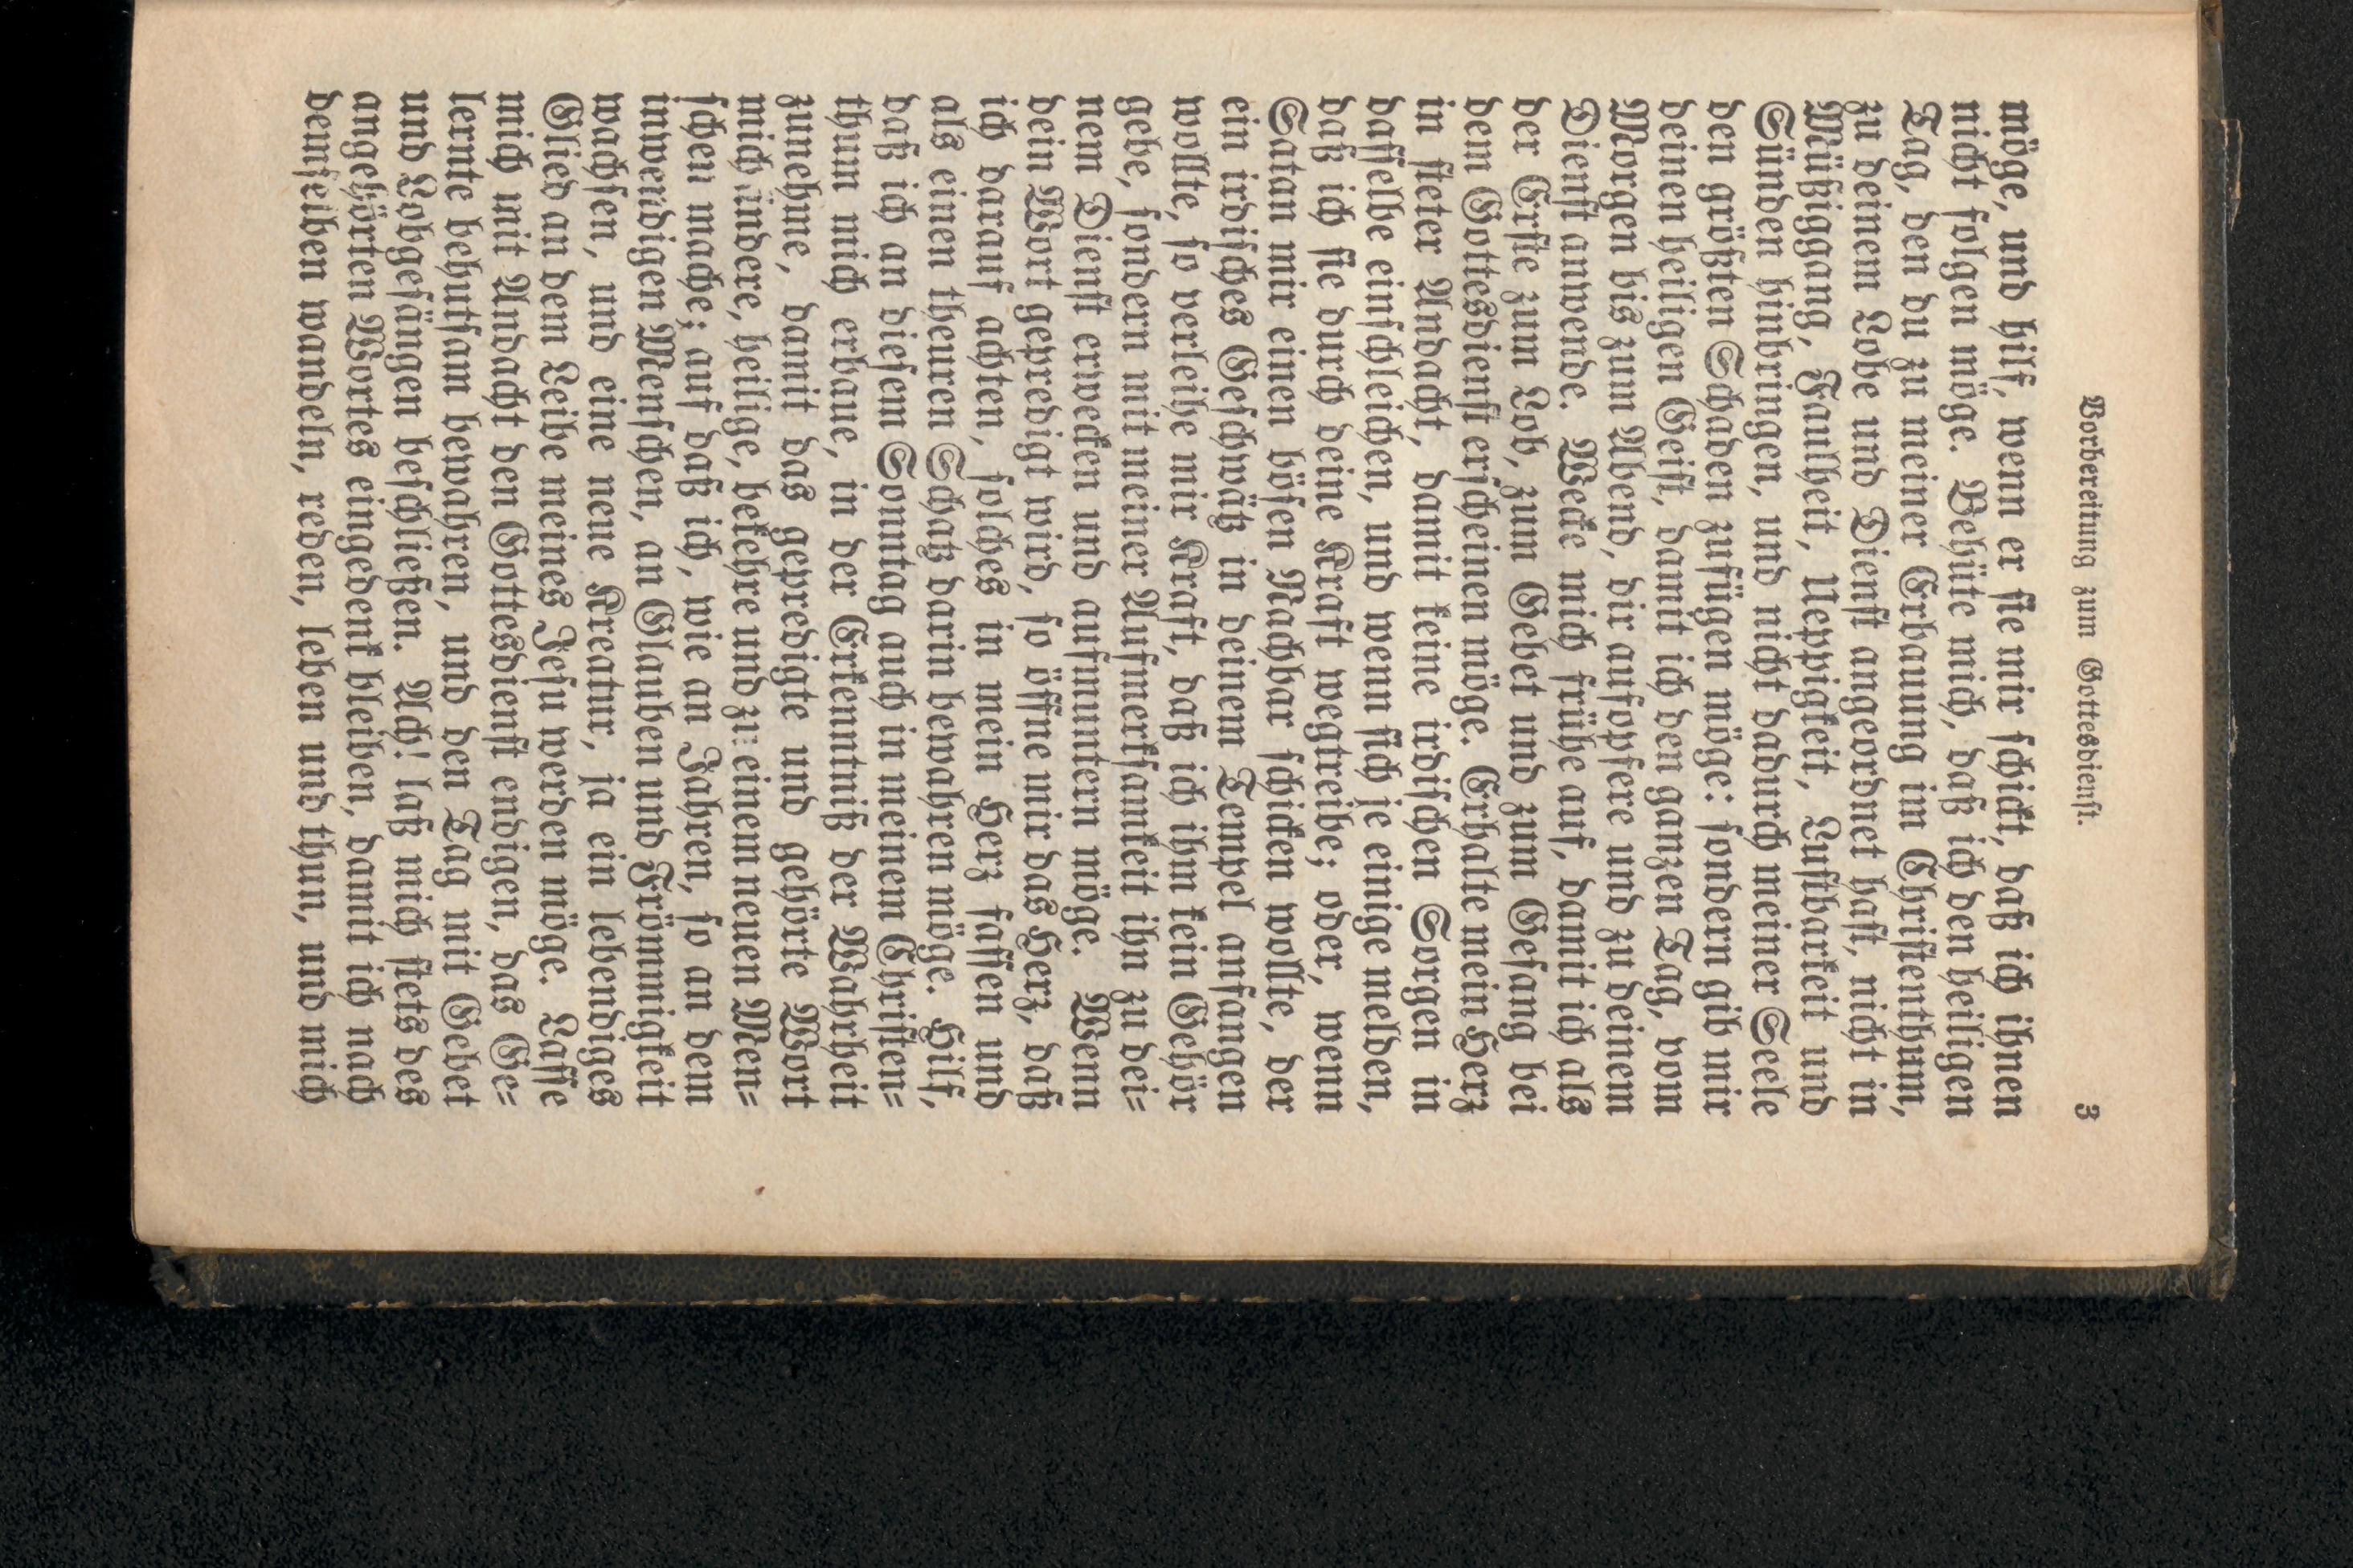 Vorbereitung zum Gottesdienst. 3
möge, und hilf, wenn er sie mir schickt, daß ich ihnen
nicht folgen möge. Behüte mich, daß ich den heiligen
Tag, den du zu meiner Erbauung im Christenthum,
zu deinem Lobe und Dienst angeordnet hast, nicht in
Müßiggang, Faulheit, Ueppigkeit, Lustbarkeit und
Sünden hinbringen, und nicht dadurch meiner Seele
den größten Schaden zufügen möge: sondern gib mir
deinen heiligen Geist, damit ich den ganzen Tag, vom
Morgen bis zum Abend, dir aufopfere und zu deinem
Dienst anwende. Wecke mich frühe auf, damit ich als
der Erste zum Lob, zum Gebet und zum Gesang bei
dem Gottesdienst erscheinen möge. Erhalte mein Herz
in steter Andacht, damit keine irdischen Sorgen in
dasselbe einschleichen, und wenn sich je einige melden,
daß ich sie durch deine Kraft wegtreibe; oder, wenn
Satan mir einen bösen Nachbar schicken wollte, der
ein irdisches Geschwätz in deinem Tempel anfangen
wollte, so verleihe mir Kraft, daß ich ihm kein Gehör
gebe, sondern mit meiner Aufmerksamkeit ihn zu dei=
nem Dienst erwecken und aufmuntern möge. Wenn
dein Wort gepredigt wird, so öffne mir das Herz, daß
ich darauf achten, solches in mein Herz fassen und
als einen theuren Schatz darin bewahren möge. Hilf,
daß ich an diesem Sonntag auch in meinem Christen=
thum mich erbaue, in der Erkenntniß der Wahrheit
zunehme, damit das gepredigte und gehörte Wort
mich ändere, heilige, bekehre und zu einem neuen Men=
schen mache; auf daß ich, wie an Jahren, so an dem
inwendigen Menschen, an Glauben und Frömmigkeit
wachsen, und eine neue Kreatur, ja ein lebendiges
Glied an dem Leibe meines Jesu werden möge. Lasse
mich mit Andacht den Gottesdienst endigen, das Ge=
lernte behutsam bewahren, und den Tag mit Gebet
und Lobgesängen beschließen. Ach! laß mich stets des
angehörten Wortes eingedenk bleiben, damit ich nach
demselben wandeln, reden, leben und thun, und mich